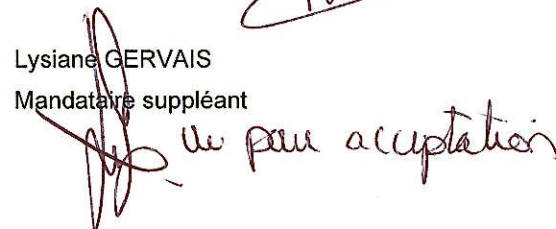 Lysiane GERVAIS
Mandataire suppléant
Vu pour acceptation